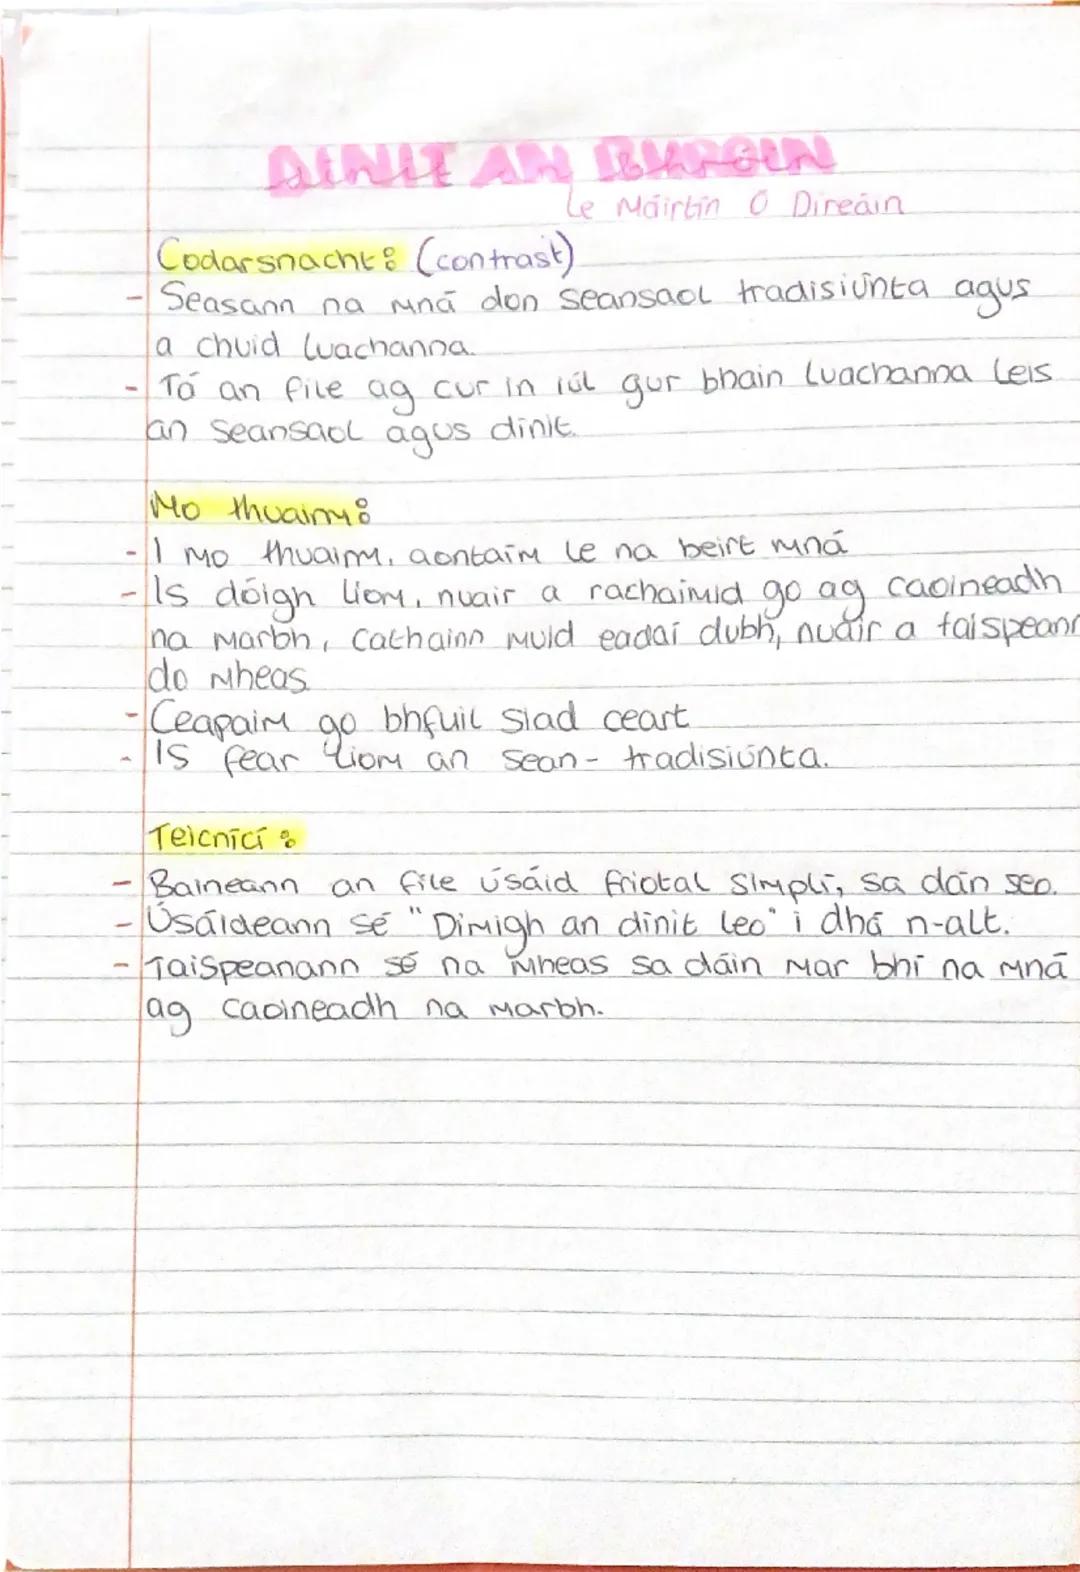 DÍNIT AN BHRÓIN
Le Máirtín Ó Direáin
Codarsnacht: (contrast)
- Seasann na mná don seansaol tradisiúnta agus
a chuid luachanna.
- Tá an file ag cur in iúl gur bhain luachanna leis
an seansaol agus dínit.
Mo thuairm:
- I mo thuairm, aontaím le na beirt mná
- Is dóigh liom, nuair a rachaimid go ag caoineadh
na marbh, cathainn muid eadaí dubh, nuair a taispeann
do mheas
- Ceapaim go bhfuil siad ceart
- Is fear liom an sean-tradisiúnta.
Teicnící:
- Baineann an file úsáid friotal simplí, sa dán seo.
- Úsáideann sé "Dimigh an dínit leo" i dhá n-alt.
- Taispeanann sé na mheas sa dáin mar bhí na mná
ag caoineadh na marbh.